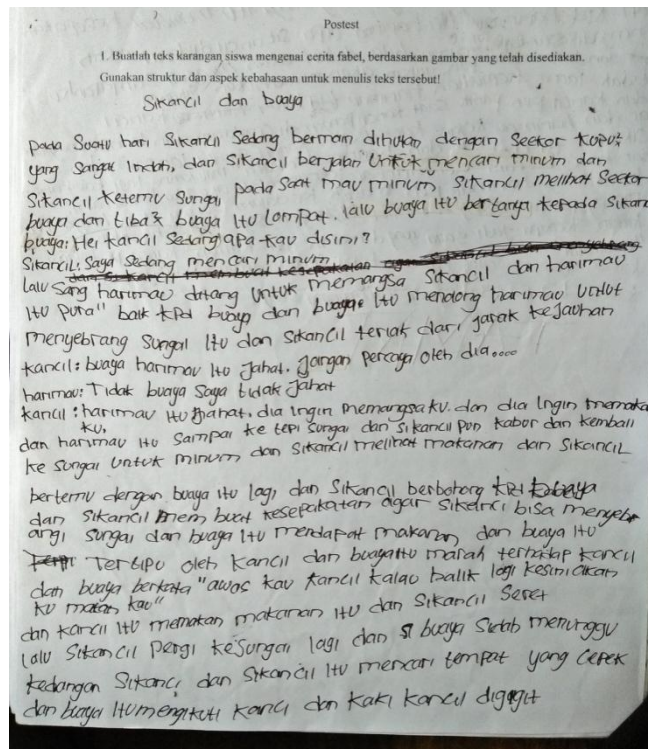 Postest
1. Buatlah teks karangan siswa mengenai cerita fabel, berdasarkan gambar yang telah disediakan.
Gunakan struktur dan aspek kebahasaan untuk menulis teks tersebut!
Sikancil dan buaya
pada suatu hari Sikancil Sedang bermain dihutan dengan Seekor kupu²
yang Sangat Indah, dan Sikancil berjalan Untuk mencari minum dan
Sikancil ketemu Sungai pada Saat mau minum, Sikancil melihat Seekor
buaya dan tiba² buaya itu lompat. lalu buaya itu bertanya kepada Sikan
buaya: Hei kancil Sedang apa kau disini?
Sikancil: Saya Sedang mencari minum
lalu Sang harimau datang untuk memangsa Sikancil dan harimau
Itu pura" baik kpd buaya dan buaya Itu menolong harimau Untuk
menyebrang Sungai Itu dan Sikancil teriak dari jarak kejauhan
kancil: buaya harimau Itu Jahat. Jangan percaya oleh dia....
harimau: Tidak buaya Saya tidak Jahat
kancil: harimau Itu Jahat, dia Ingin memangsaku. dan dia Ingin memaka
ku,
dan harimau Itu Sampai ke tepi Sungai dan Sikancil pun kabor dan kembali
ke Sungai Untuk minum dan Sikancil melihat makanan dan Sikancil
bertemu dengan buaya itu lagi dan Sikancil berbohong
dan Sikancil membuat kesepakatan agar Sikancil bisa menyebr
angi Sungai dan buaya Itu mendapat makanan dan buaya Itu
Tertipu oleh kancil dan buaya Itu marah terhadap kancil
dan buaya berkata "awas kau kancil kalau balik lagi kesini akan
ku makan kau"
dan kancil Itu memakan makanan Itu dan Sikancil Seret
lalu Sikancil Pergi ke Sungai lagi dan buaya Sudah menunggu
kedangan Sikanci dan Sikancil Itu mencari tempat yang Cepek
dan buaya Itu mengikuti kanci dan kaki kancil digigit